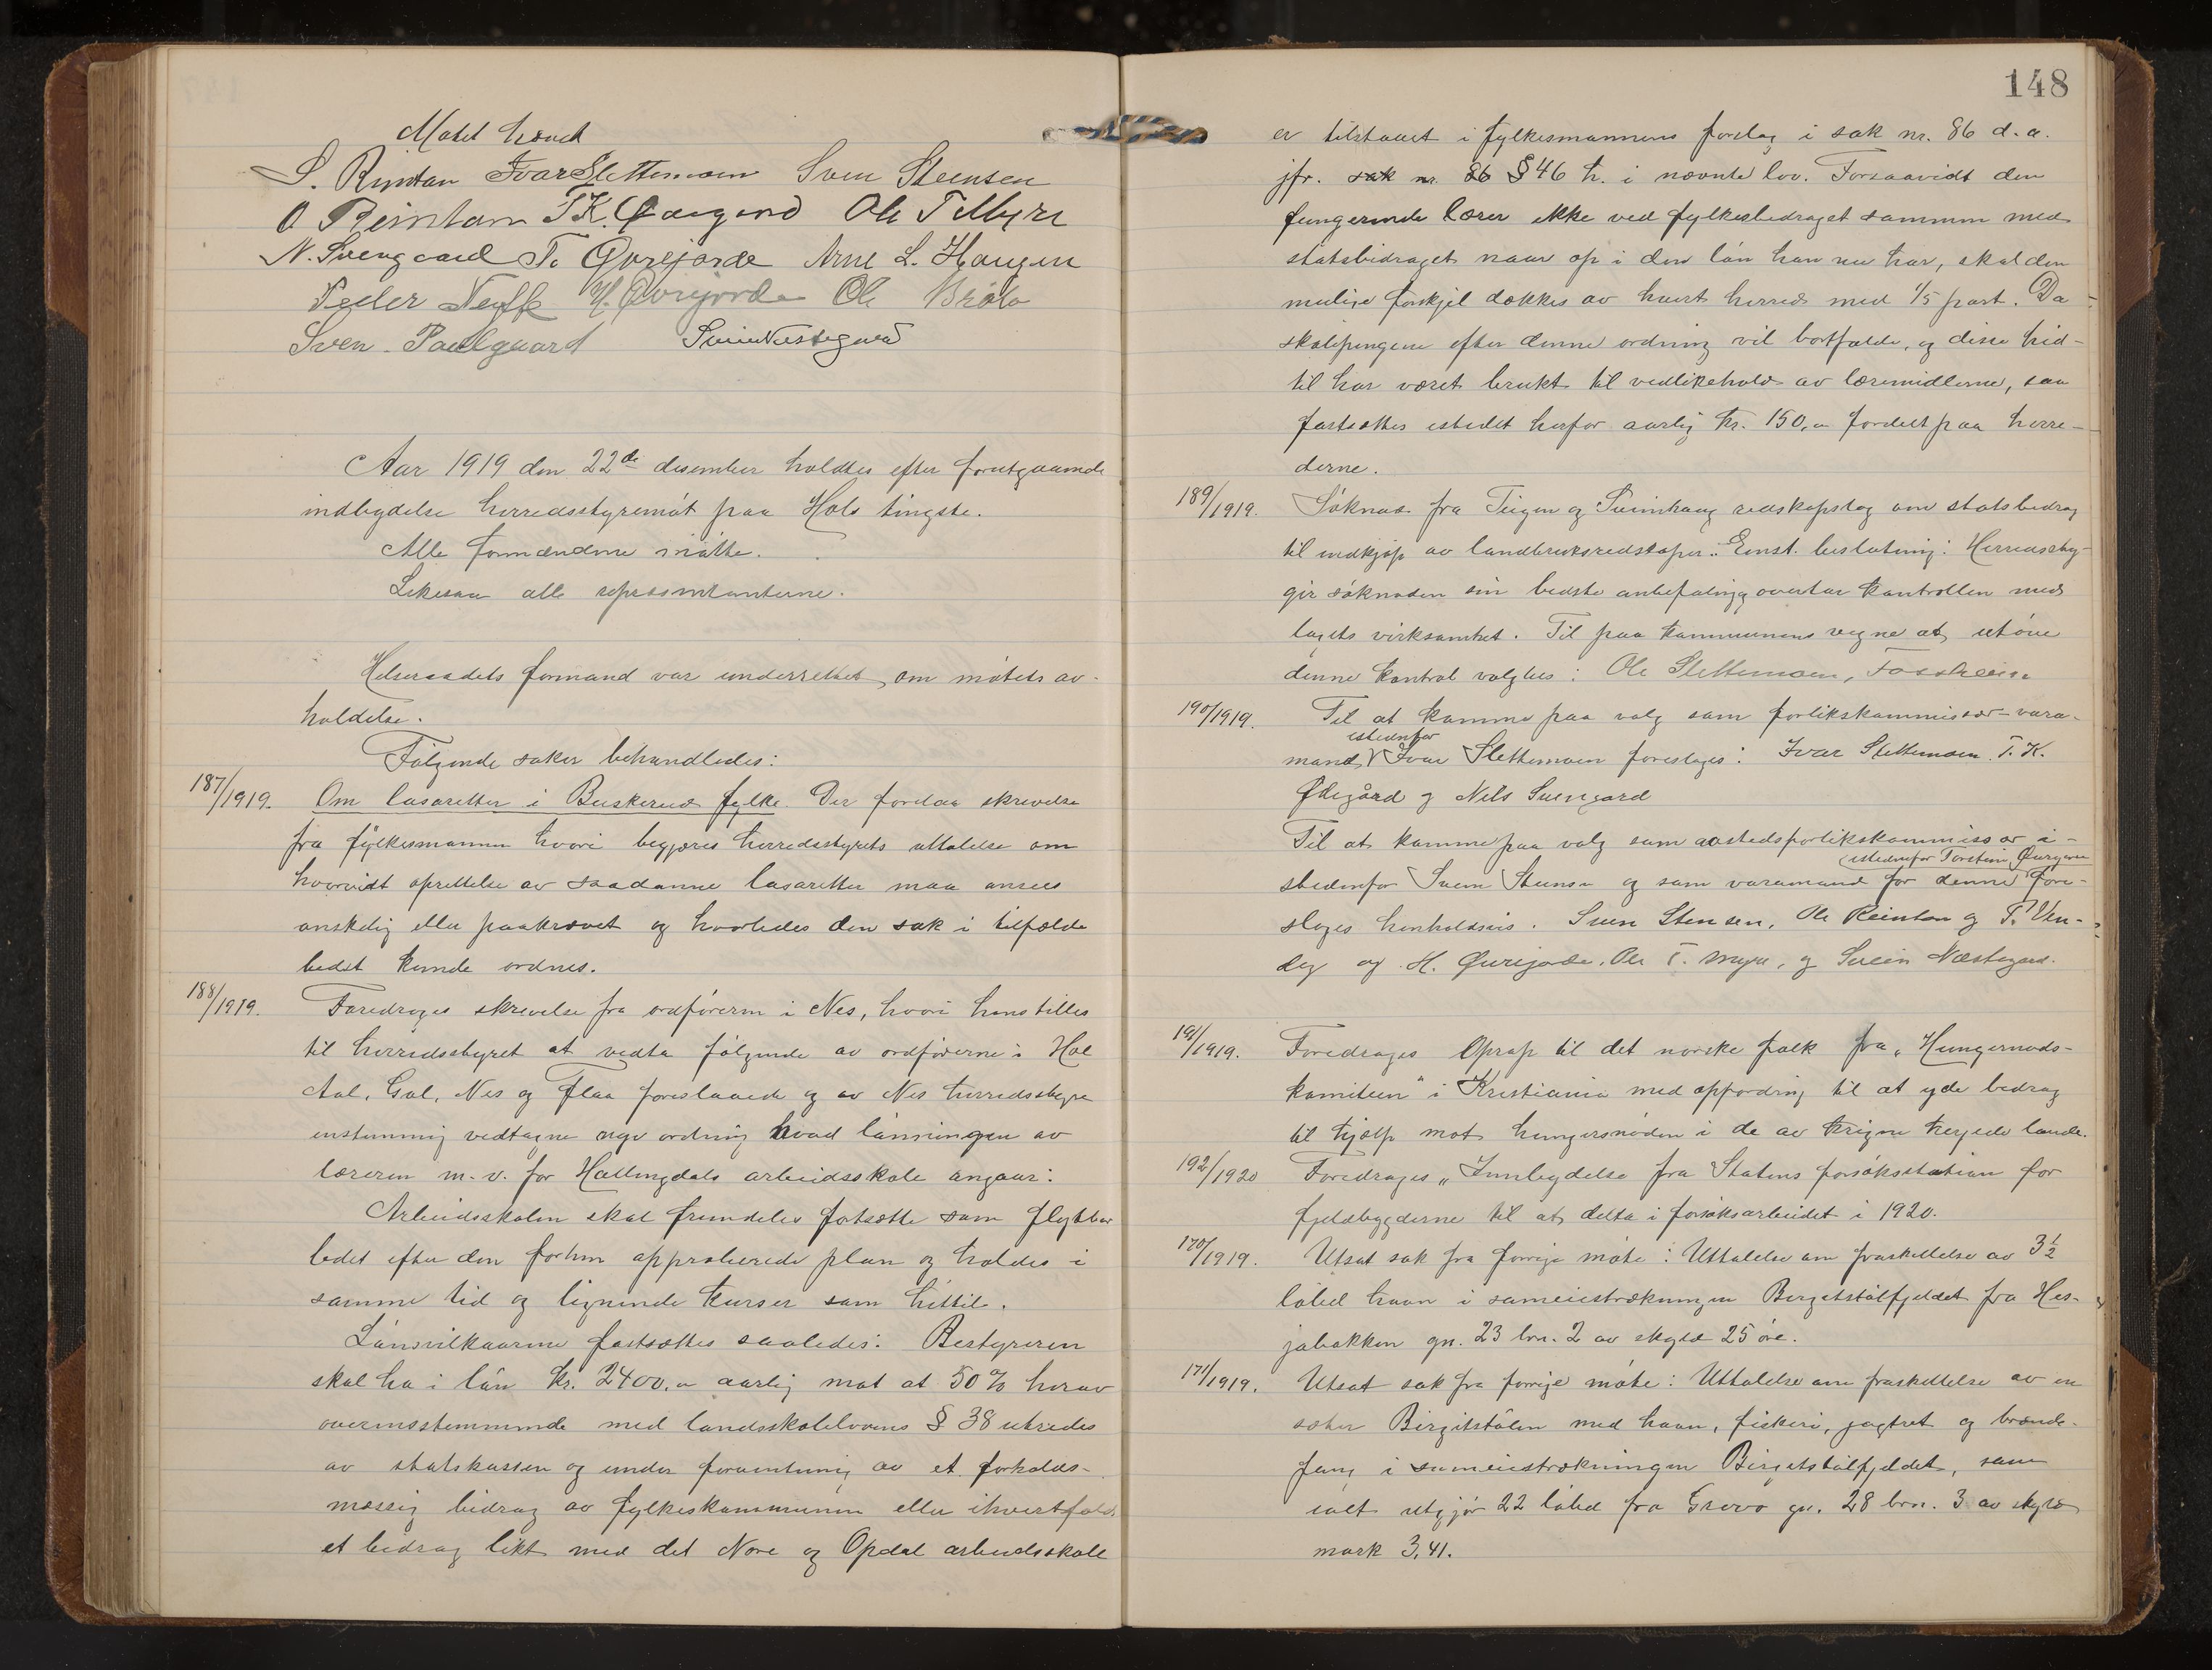 Møtet hævet
S. Rintan Ivar Slettemoen Sven Steensen
O Reinton T. K. Ødegård Ole T Myre
N. Svengaard T. Øvrejorde Arne L. Haugen
Peder H. Øvrejorde Ole Bråto
Sven Paulgaard Svein Næstegaard
Aar 1919 den 22de desember holdtes efter forutgaaende
indbydelse herredsstyremøt paa Hols tingste.
Alle formændene møtte.
Likesaa alle representanterne.
Helseraadets formand var underrettet om møtets av-
holdelse.
Følgende saker behandledes:
187/1919. Om lasaretter i Buskerud fylke. Der forelaa skrivelse
fra fylkesmannen hvori begjæres herredsstyrets uttalelse om
hvorvidt oprettelse av saadanne lasaretter maa ansees
ønskelig eller paakrævet og hvorledes den sak i tilfælde
bedst kunde ordnes.
188/1919. Foredroges skrivelse fra ordføreren i Nes, hvori henstilles
til herredsstyret at vedta følgende av ordførerne i Hol
Aal, Gol, Nes og Flaa foreslaaede og av Nes herredsstyre
enstemmig vedtagne nye ordning hvad lønningen av
læreren m. v. for Hallingdals arbeidsskole angaar:
Arbeidsskolen skal fremdeles fortsætte som flyttbar
ledet efter den forhen approberede plan og holdes i
samme tid og lignende kurser som hittil.
Lønsvilkaarene fastsættes saaledes: Bestyreren
skal ha i løn kr. 2400,- aarlig mot at 50% herav
overensstemmende med landsskolelovens § 38 utredes
av statskassen og under forventning av et forholds-
mæssig bidrag av fylkeskommunen eller ihvertfald
et bidrag likt med det Nore og Opdal arbeidsskole
148
er tilstaaet i fylkesmannens forslag i sak nr. 86 d. a.
jfr. sak nr. 86 § 46 h. i nævnte lov. Forsaavidt den
fungerende lærer ikke ved fylkesbidraget sammen med
statsbidraget naar op i den løn han nu har, skal den
mulige forskjel dækkes av hvert herred med 1/5 part. Da
skolepengene efter denne ordning vil bortfalde, og disse hid-
til har været brukt til vedlikehold av læremidlerne, saa
fastsættes istedet herfor aarlig kr. 150,- fordelt paa herre-
derne.
189/1919. Søknad fra Teigen og Sveinhaug redskapslag om statsbidrag
til indkjøp av landbruksredskaper. Enst. beslutning: Herredssty-
gir søknaden sin bedste anbefaling og overtar kontrollen med
lagets virksomhet. Til paa kommunens vegne at utøve
denne kontrol valgtes: Ole Slettemoen, Fossheim
190/1919. Til at komme paa valg som forlikskommissær-vara-
istedenfor
mand Ivar Slettemoen foreslages: Ivar Slettemoen T. K.
Ødegård og Nils Svengaard
Til at komme paa valg som aastedsforlikskommissær i-
istedenfor Torstein
stedenfor Svein Steensen og som varamand for denne fore-
sloges henholdsvis. Sven Stensen, Ole Reinton og T.
og H. Øvrejorde, Ole T. Myre, og Svein Næstegard.
191/1919. Foredroges Oprop til det norske folk fra "Hungernøds-
komiteen" i Kristiania med oppfordring til at yde bidrag
til hjælp mot hungersnøden i de av krigen herjede lande.
192/1920 Foredroges "Innbydelse fra Statens forsøksstation for
fjeldbygderne til at delta i forsøksarbeidet i 1920.
170/1919. Utsat sak fra forrige møte: Uttalelse om fraskillelse av 3½
løbed havn i sameiestrækningen Bergetstølfjeldet fra Hes-
jabakken gn. 23 brn. 2 av skyld 25 øre.
171/1919. Utsat sak fra forrige møte: Uttalelse om fraskillelse av en
sæter Birgitstølen med havn, fiskeri, jagtret og brænde-
fang i sameiestrækningen Birgitstølfjeldet, som
ialt utgjør 22 løbed fra Grovo gn. 28 brn. 3 av skyld
mark 3,41.